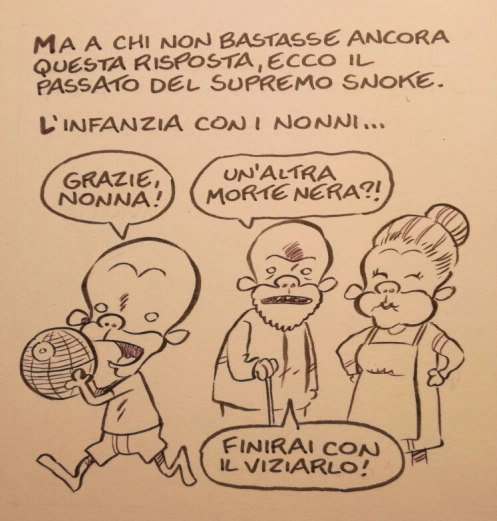 MA A CHI NON BASTASSE ANCORA
QUESTA RISPOSTA, ECCO IL
PASSATO DEL SUPREMO SNOKE.
L'INFANZIA CON I NONNI...
GRAZIE,
NONNA!
UN'ALTRA
MORTE NERA?!
FINIRAI CON
IL VIZIARLO!